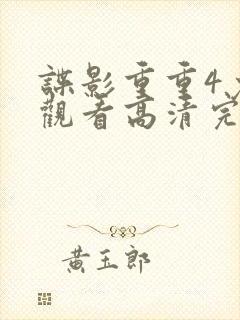 諜影重重4
觀看高清完
黃玉郎